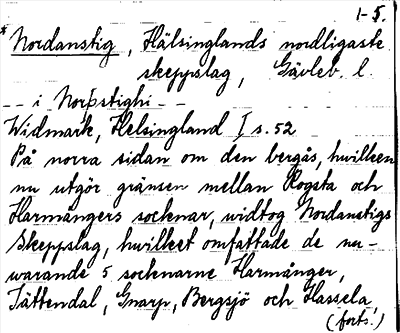 1-5.
* Nordanstig, Hälsinglands nordligaste
skeppslag, Gävleb. l.
-- i Norþstighi --
Widmark, Helsingland I s. 52
På norra sidan om den bergås, hvilken
nu utgör gränsen mellan Rogsta och
Harmångers socknar, widtog Nordanstigs
Skeppslag, hvilket omfattade de nu-
warande 5 socknarne Harmånger,
Jättendal, Gnarp, Bergsjö och Hassela
(forts.)